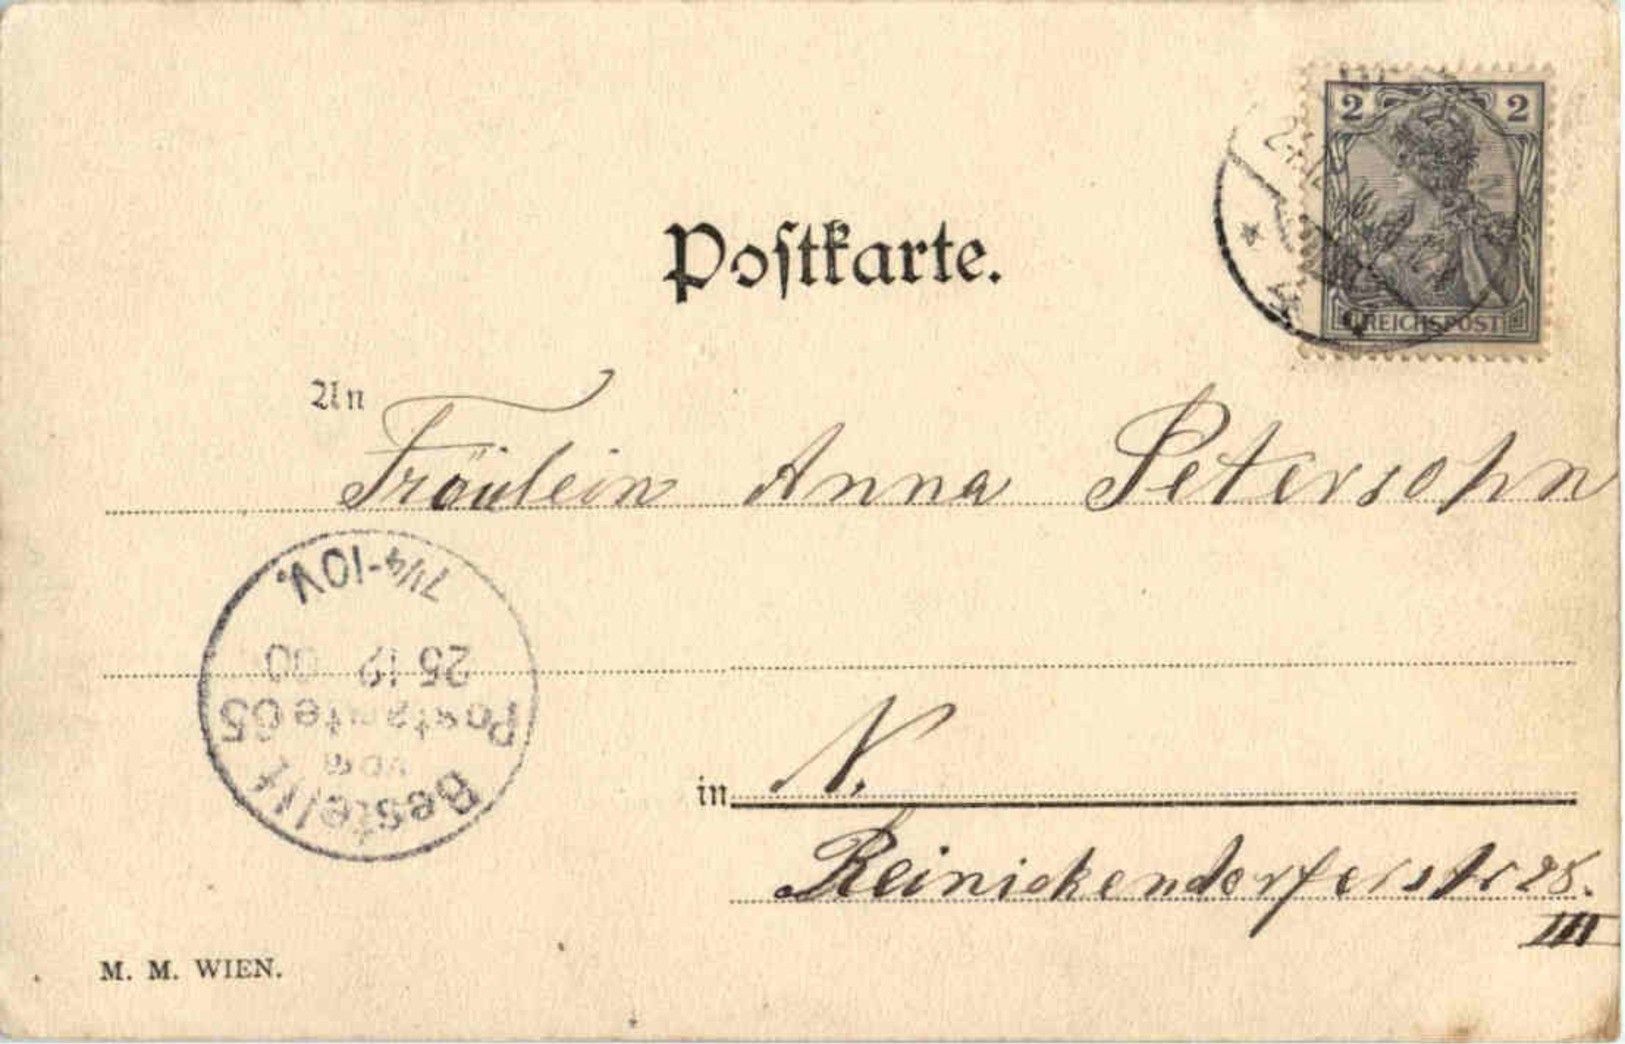 Postkarte.
2 2
REICHSPOST
An
Fräulein Anna Petersohn
in N.
Reinickendorferstr 28.
III
Bestellt
vom
Postamte 65
25 12 00
7¼-10V.
M. M. WIEN.